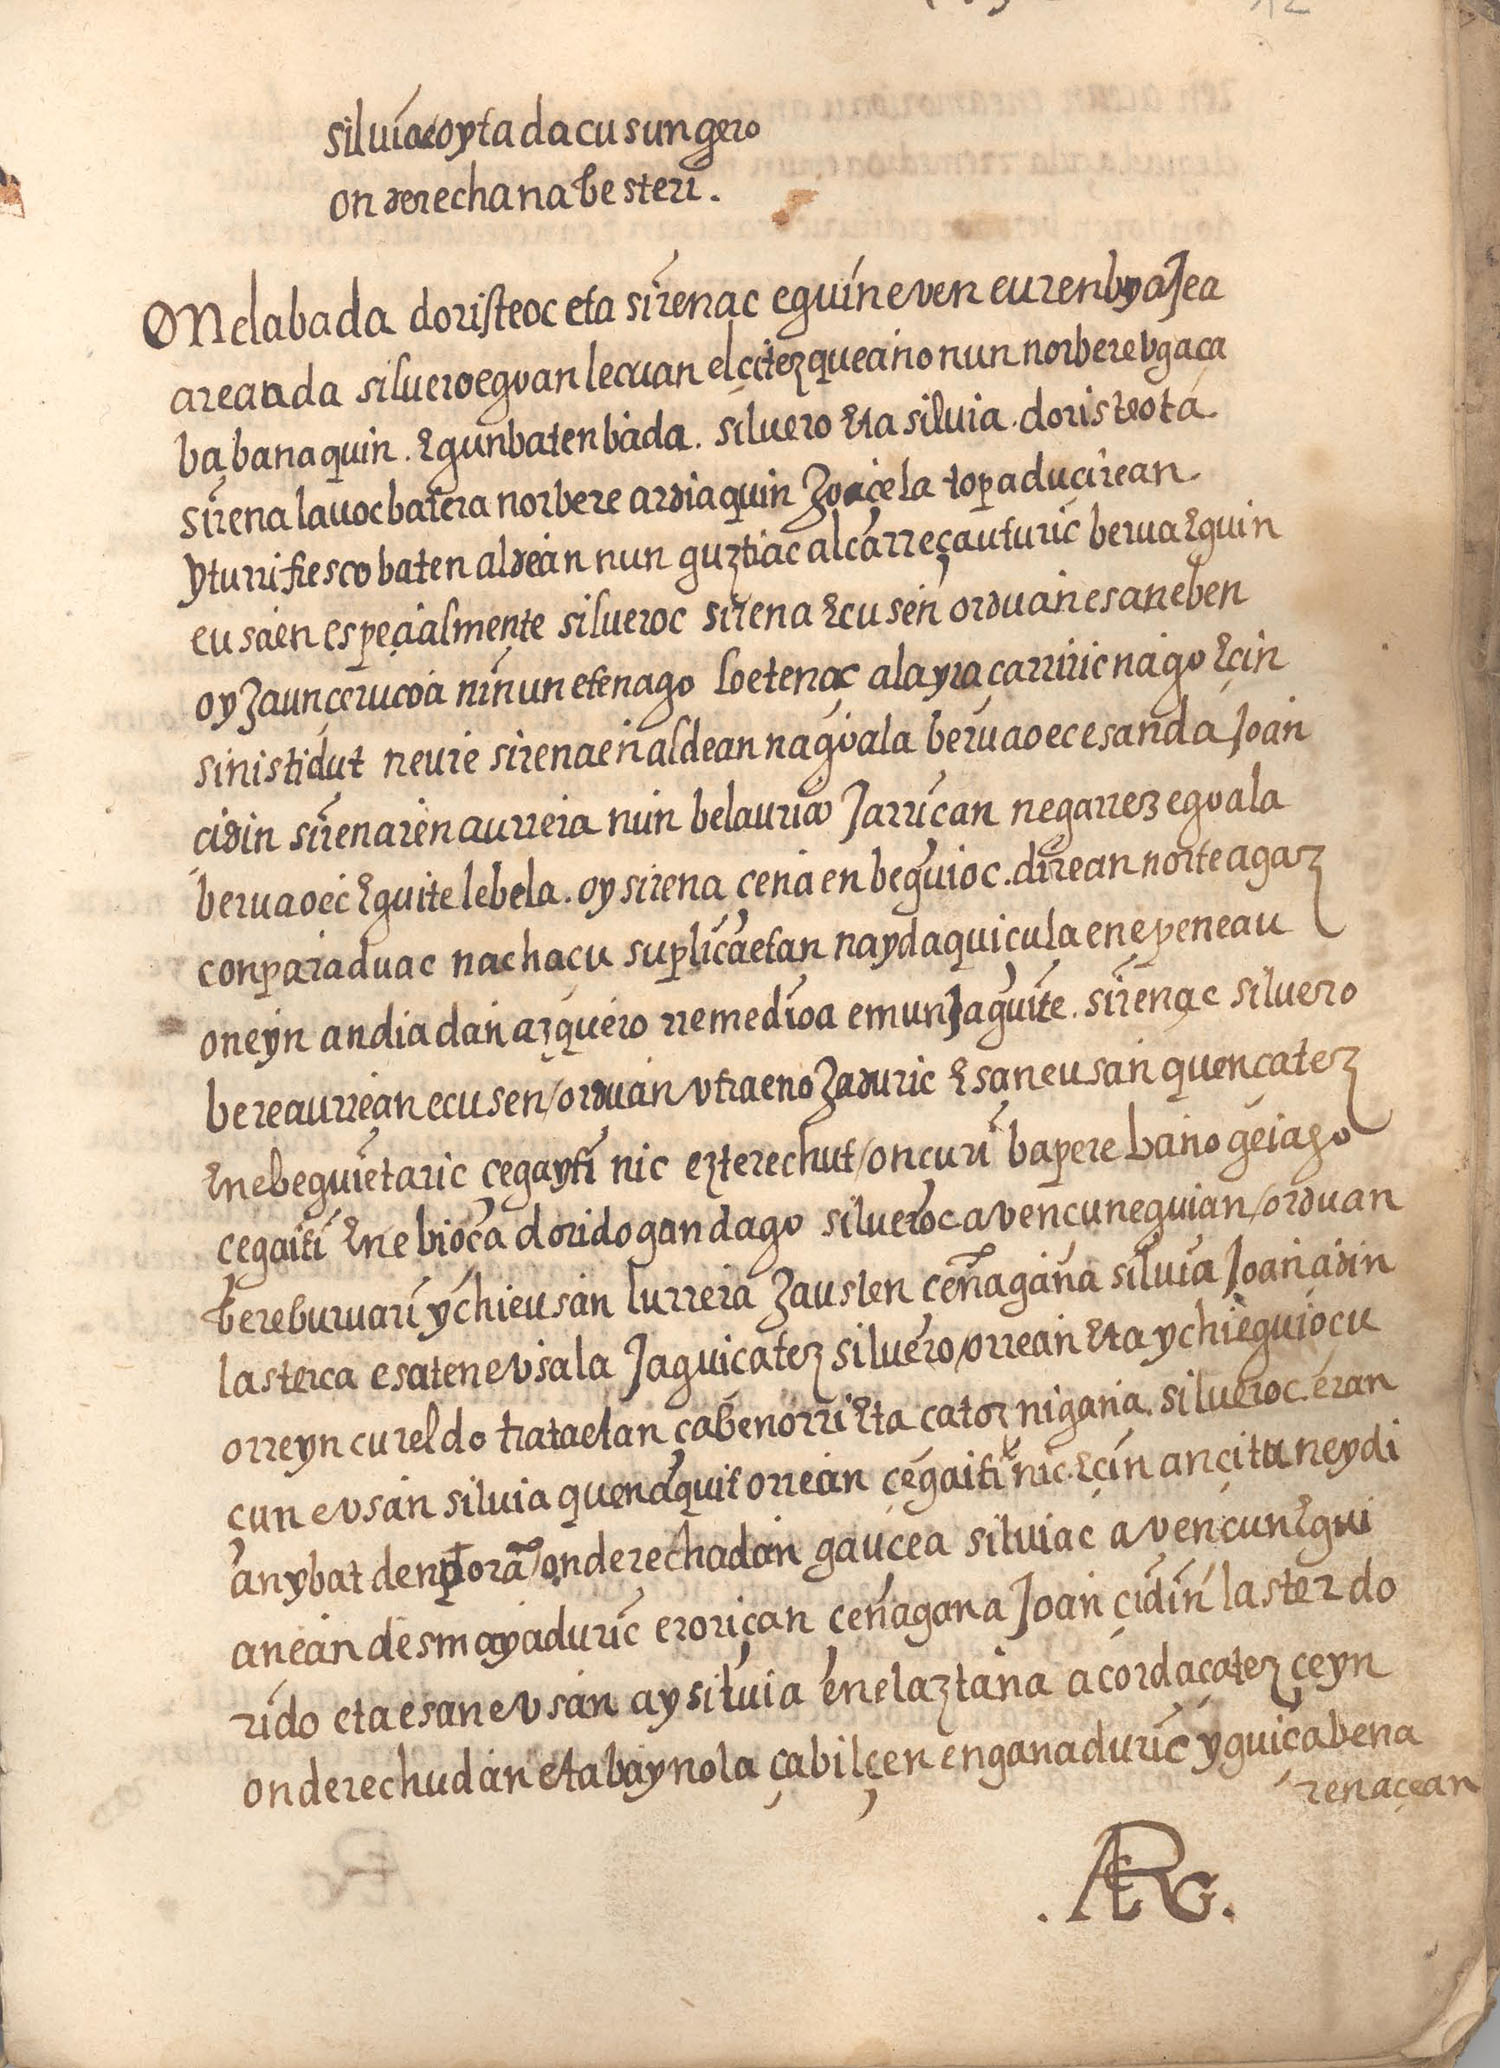 silviac oyta dacusun gero
on derechana besteri.
ONelabada doristeoc eta sirenac eguin even euren byajea
areanda silveroegoan lecuan elcitezqueano nun norberevgaça
ba banaquin. egunbatenbada. silvero eta silvia. doristeota
sirena lavoc batera norbere ardiaquin Joaicela topaducirean
yturri fresco baten aldean nun guztiac alcarreçauturic berva eguin
eusaen especialmente silveroc sirena ecusen orduan esaneben
oy Jaun çerucoa ninun etenago loetenac ala yraçarriric nago eçin
sinistidut neure sirenaen aldean nagoala berva oec esanda Joan
cidin sirenaren aurrera nun belaurico Jarrican negarrez egoala
berva oec eguitelebela. oy sirena çena en beguioc. direan norteagaz
conparaduac nachaçu suplicaetan naydaquiçula ene peneau
oneyn andia dan azquero rremedioa emunJaguite. sirenac silvero
bere aurrean ecusen / orduan vtraeno Jaduric esaneusan quençatez
ene beguietaric çegayti nic ezterechut / oncuri bapere baño geiago
çegaiti ene bioça dorido gandago silveroc avencuneguian / orduan
bereburuari ychieusan lurrera Jausten ceñagana silvia Joançidin
lasterca esatenevsala Jaguicatez silvero / orrean eta ychieguiocu
orreyn cureldo trataetan çabenorri eta catoz nigana. silveroc. eran
çun evsan silvia quendaquit orrean çegaiti nic. eçin ançitu neydi
anybat denpora / onderechadan gauçea silviac avençuneguí
anean desmayaduric eroriçan ceñagana Joan çidin laster do
rido eta esanevsan ay silvia ene laztana acordaçatez çeyn
onderechudan eta baynola çabilçen enganaduric yguiçabena
renaçean
.AERG.